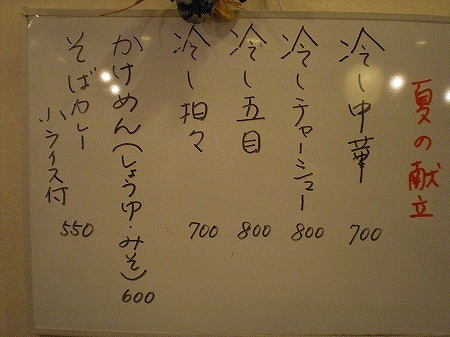 夏の献立
冷し中華 700
冷しチャーシュー 800
冷し五目 800
冷し担々 700
かけめん(しょうゆ・みそ) 600
そばカレー 550
小ライス付